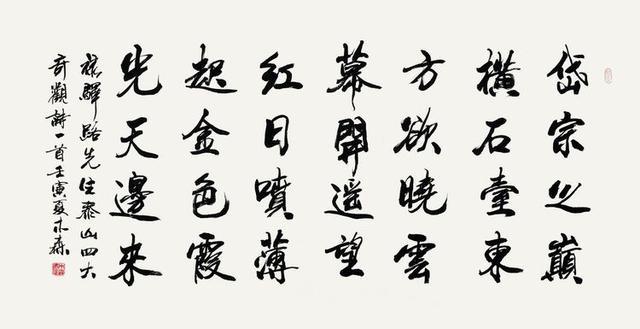 岱宗之巔
橫石臺東
方欲曉雲
幕開遥望
紅日噴薄
起金色霞
光天邊來
驛路先生泰山四大
奇觀詩一首壬寅夏木森